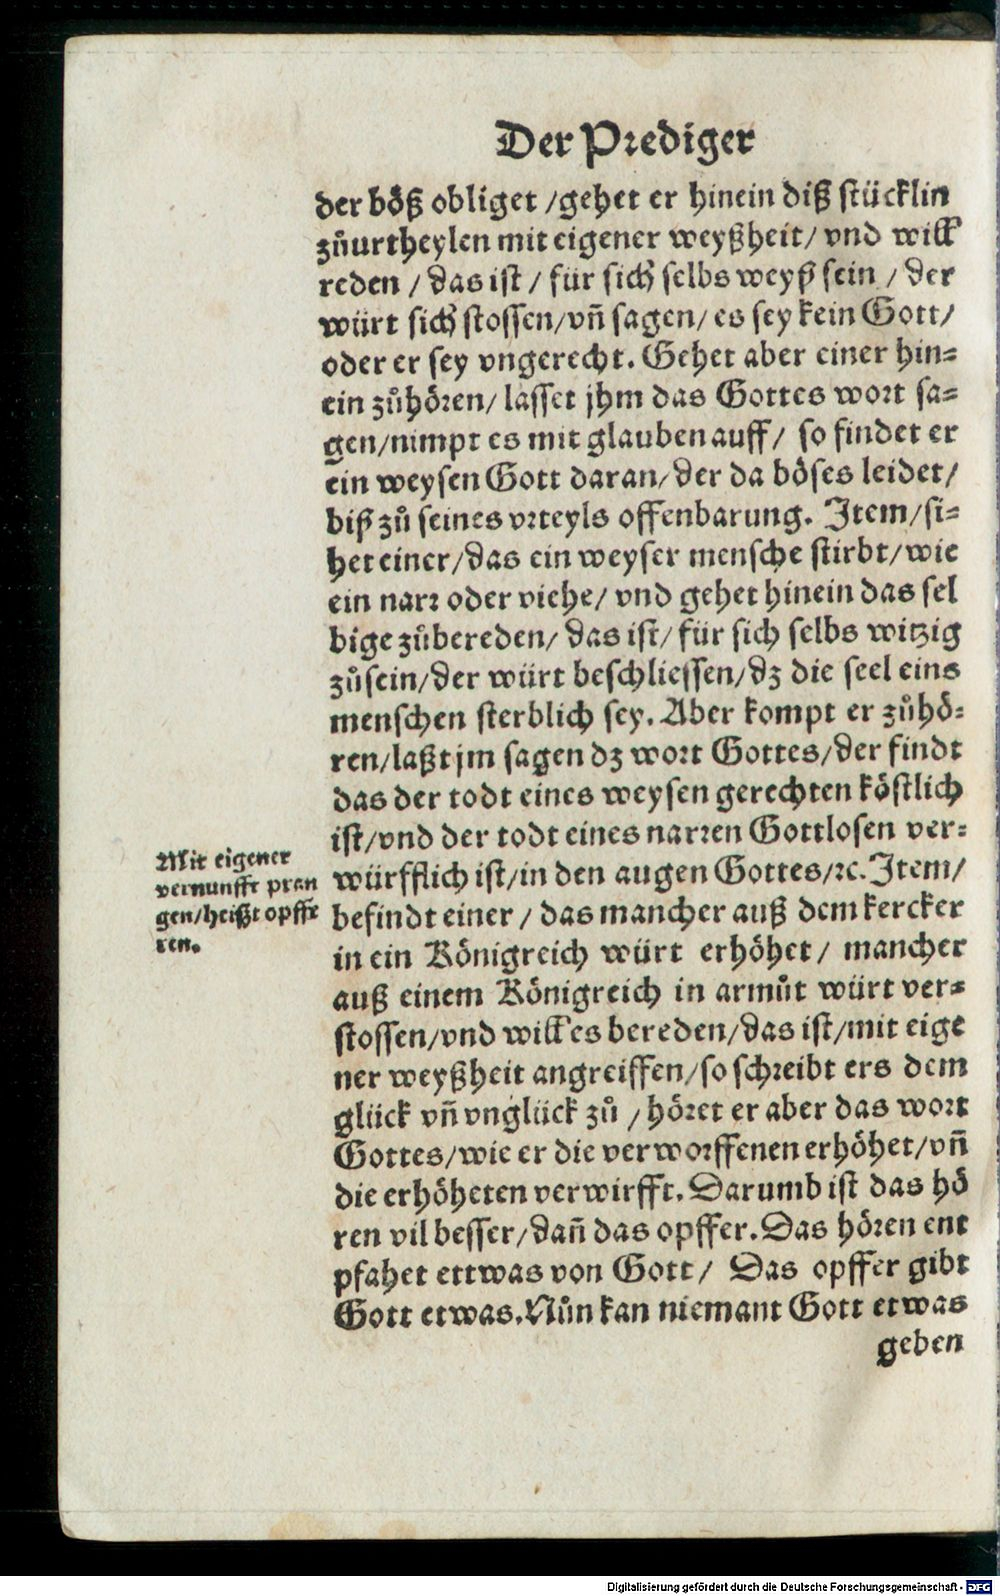 Der Prediger
der böß obliget /gehet er hinein diß stücklin
zůurtheylen mit eigener weyßheit/ vnd will
reden / das ist / für sich selbs weyß sein / der
würt sich stossen/vñ sagen/ es sey kein Gott/
oder er sey vngerecht. Gehet aber einer hin=
ein zůhören/ lasset jhm das Gottes wort sa=
gen/nimpt es mit glauben auff/ so findet er
ein weysen Gott daran/der da böses leidet/
biß zů seines vrteyls offenbarung. Item/si=
het einer/das ein weyser mensche stirbt/wie
ein narr oder viehe/ vnd gehet hinein das sel
bige zůbereden/ das ist/ für sich selbs witzig
zůsein/der würt beschliessen/dz die seel eins
menschen sterblich sey. Aber kompt er zůhö=
ren/laßt jm sagen dz wort Gottes/der findt
das der todt eines weysen gerechten köstlich
ist/vnd der todt eines narren Gottlosen ver=
würfflich ist/in den augen Gottes/ꝛc. Item/
befindt einer / das mancher auß dem kercker
in ein Königreich würt erhöhet/ mancher
auß einem Königreich in armůt würt ver=
stossen/vnd will es bereden/das ist/mit eige
ner weyßheit angreiffen/so schreibt ers dem
glück vñ vnglück zů / höret er aber das wort
Gottes/wie er die verworffenen erhöhet/vñ
die erhöheten verwirfft. Darumb ist das hö
ren vil besser/dañ das opffer. Das hören ent
pfahet ettwas von Gott/ Das opffer gibt
Gott etwas. Nůn kan niemant Gott etwas
geben
Mit eigener
vernunfft pran
gen/heißt opffe
ren.
Digitalisierung gefördert durch die Deutsche Forschungsgemeinschaft - DFG